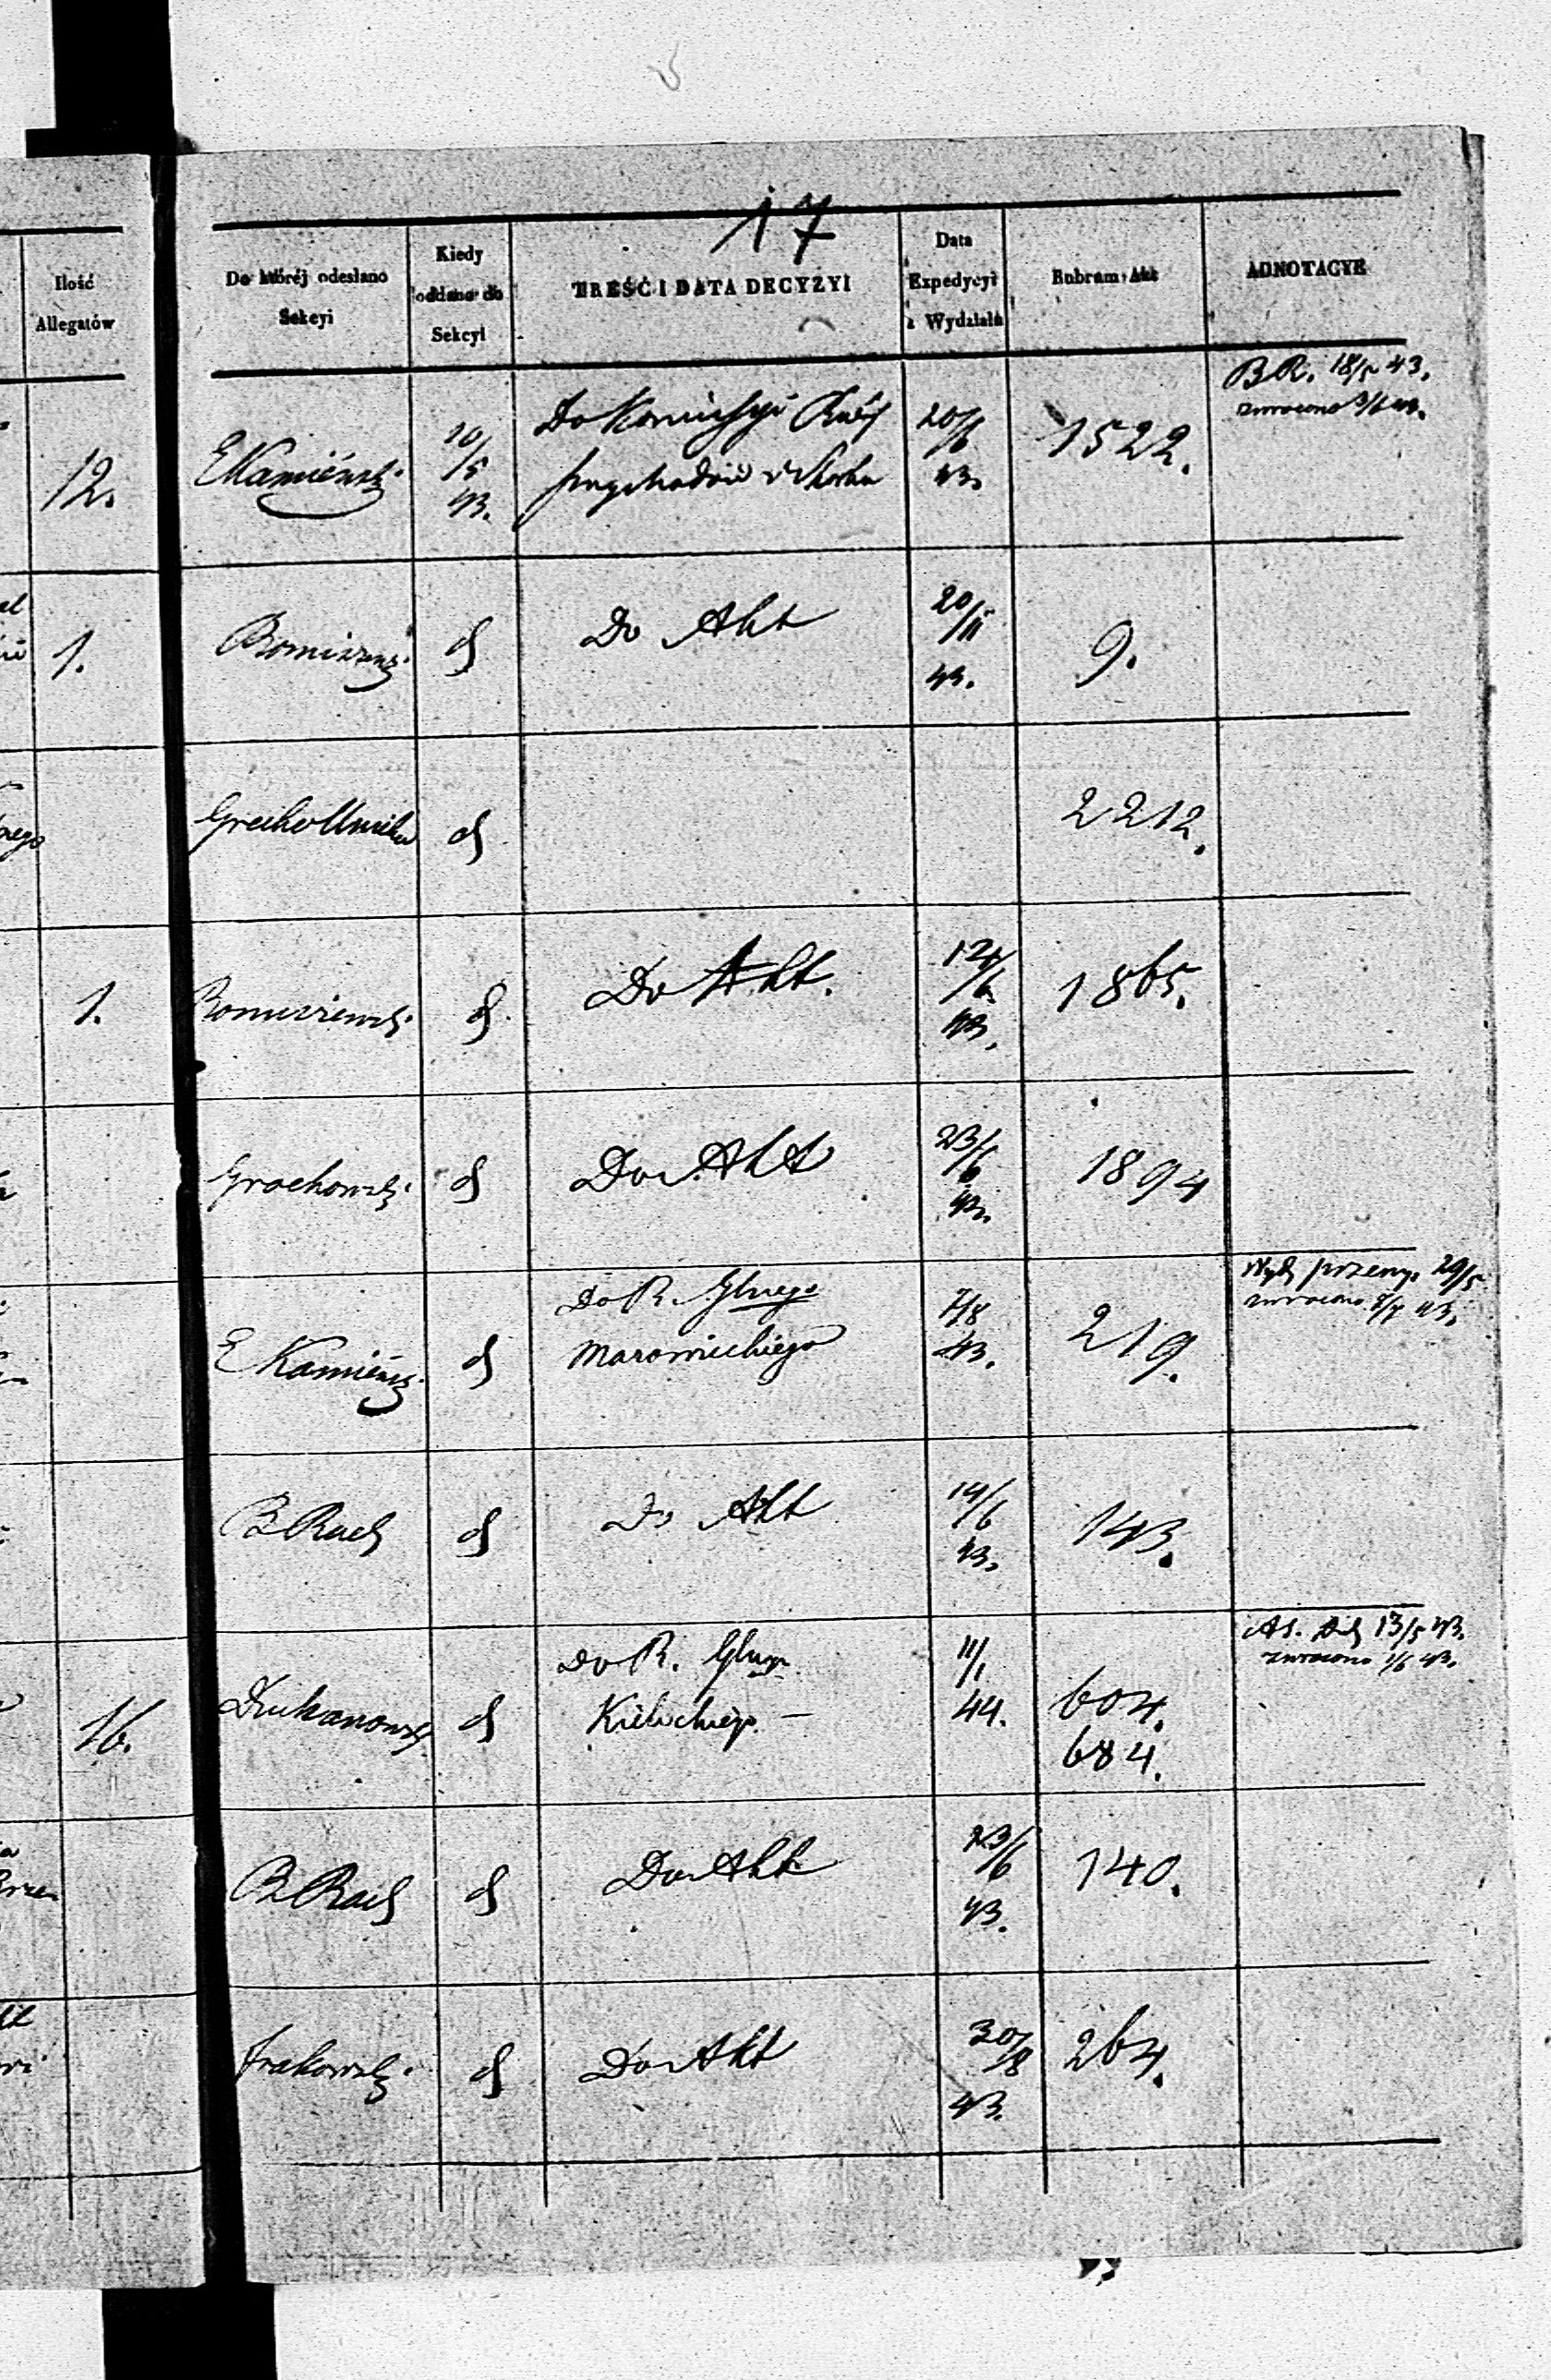 17
Ilość
Allegatów
Do któréj odesłano
Sekcyi
Kiedy
oddano do
Sekcyi
TREŚĆ I DATA DECYZYI
Data
Expedycyi
z Wydziału
Rubrum Akt
ADNOTACYE
12.
EKamiéński
10/
/5
43.
Do Kommissyi Rząd
Przychodów i Skarbu
20/6
43.
1522.
BR. 18/5 43.
zwrócono 3/6 43.
1.
d
Do Akt
20/11
43.
9.
d
2212.
1.
d
Do Akt.
12/6
43.
1865.
Grochowski
d
Do Akt
23/6
43.
1894
E Kamiéński
d
Do R. Glnego
Mazowieckiego
7/8
43.
219.
Wydz przemy. 29/5
zwrócono 43.
B Rach
d
Do Akt
19/6
43.
143.
16.
d
Do R. Glnego
Kieleckiego. —
11/1
44.
604.
684.
13/5 43.
zwrócono 1/6 43.
B Rach
d
Do Akt
23/6
43.
140.
d
Do Akt
30/8
43.
264.